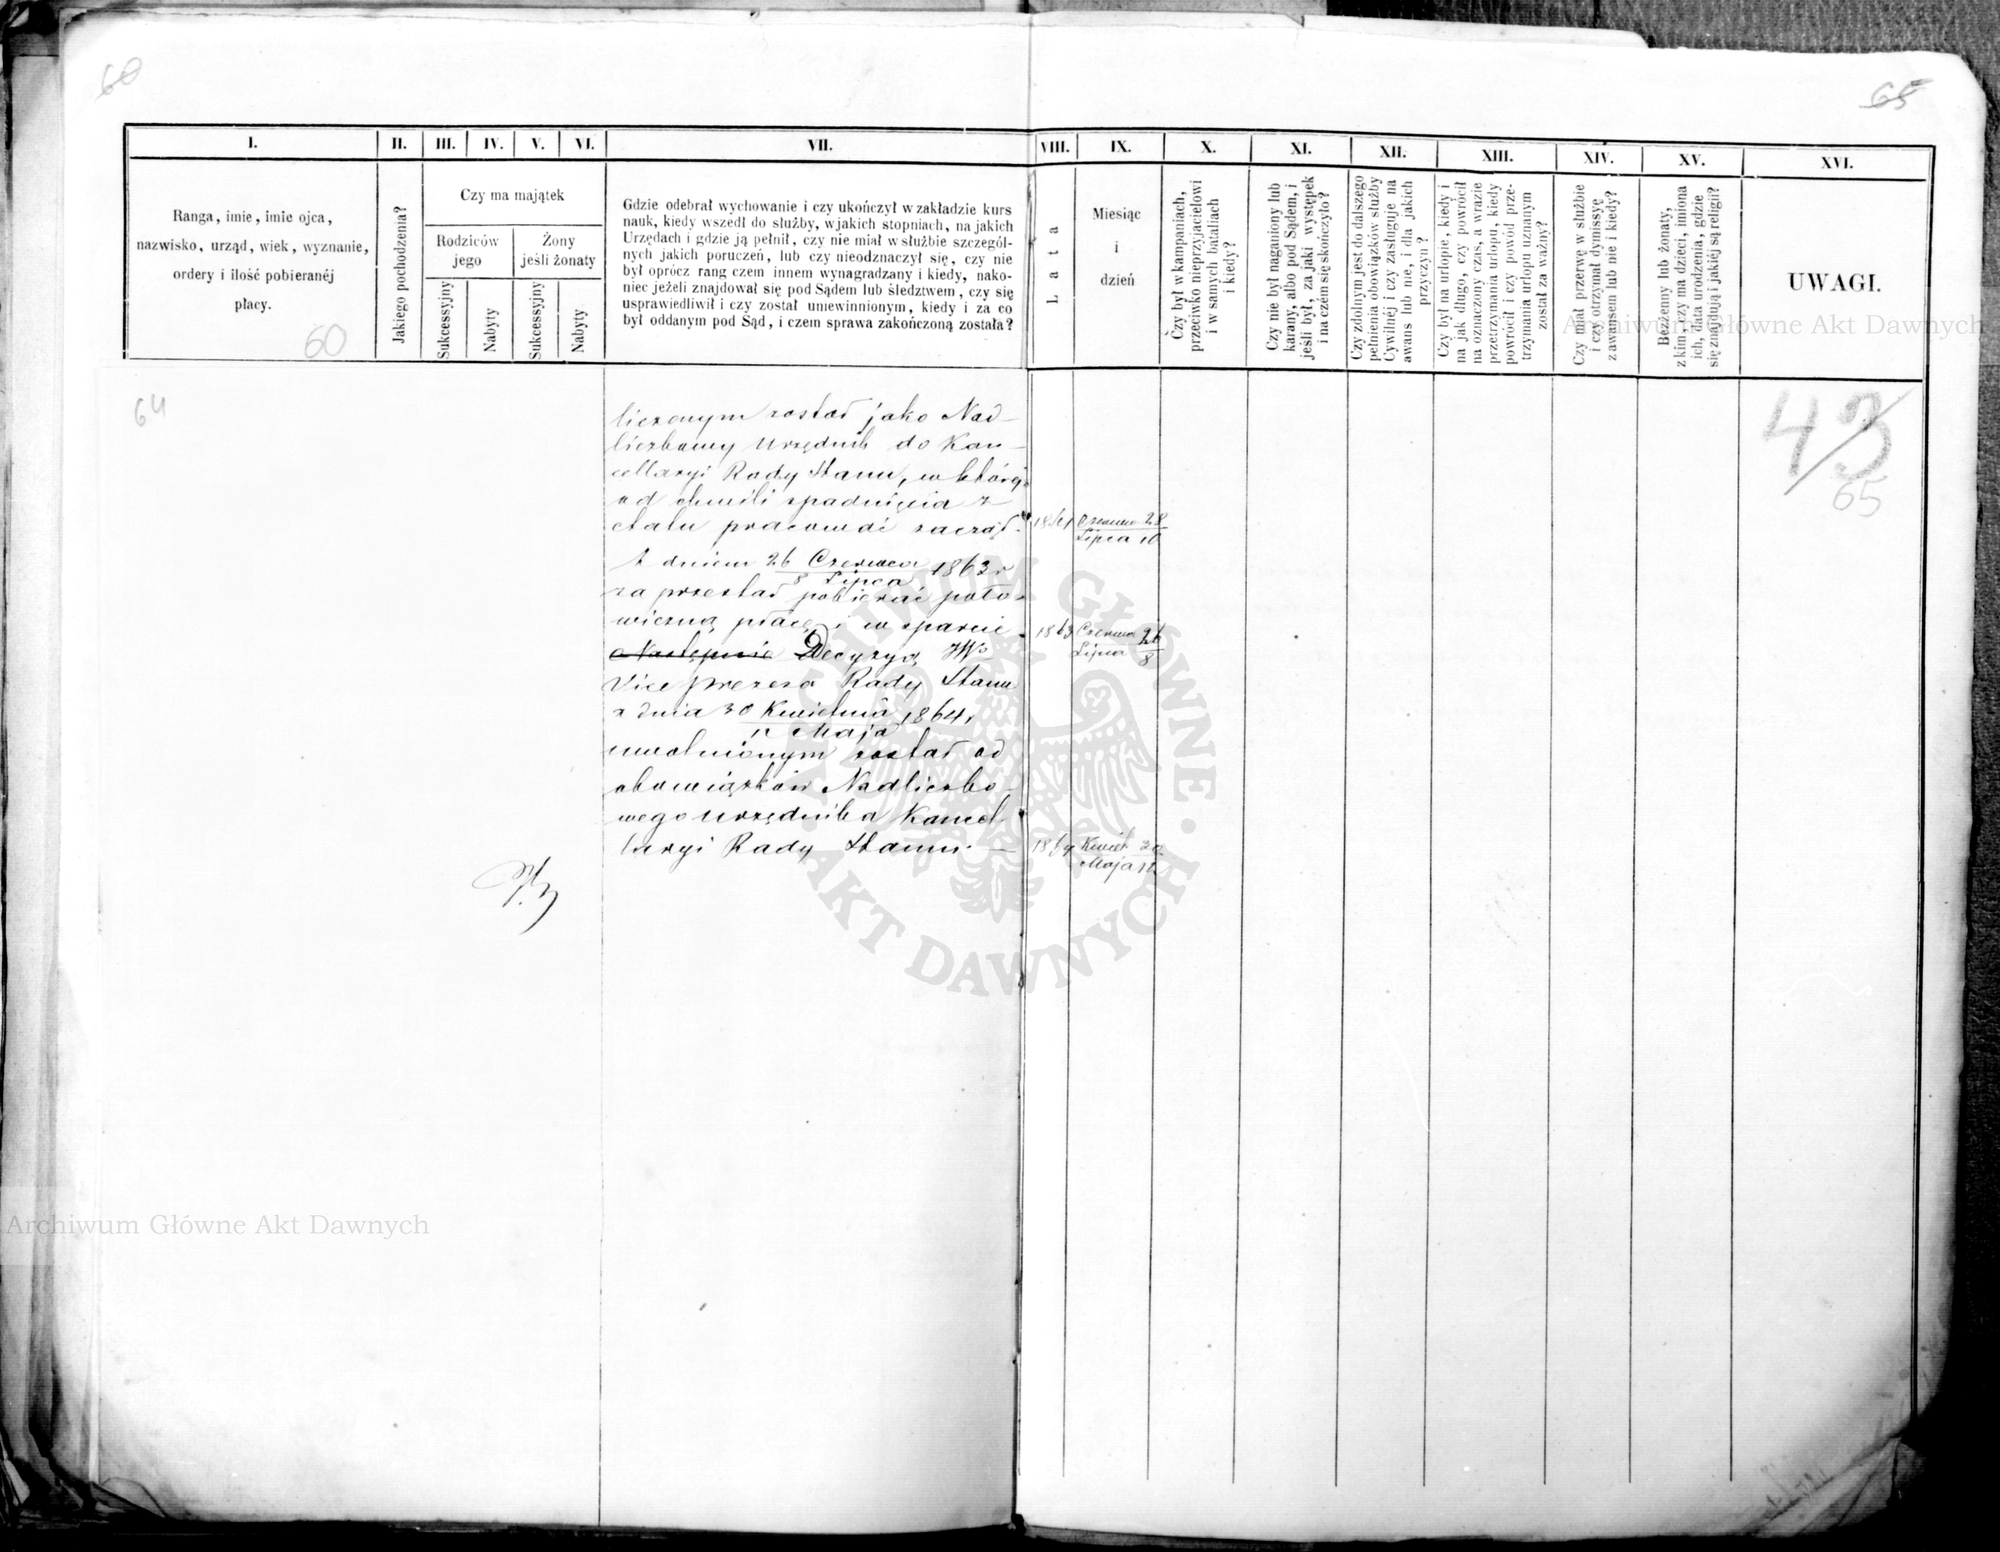 60
65
I.
II.
III.
IV.
V.
VI.
VII.
VIII.
IX.
X.
XI.
XII.
XIII.
XIV.
XV.
XVI.
Ranga, imie, imie ojca,
nazwisko, urząd, wiek, wyznanie,
ordery i ilość pobieranéj
płacy.
60
Jakiego pochodzenia?
Czy ma majątek
Rodziców
jego
Żony
jeśli żonaty
Sukcessyjny
Nabyty
Sukcessyjny
Nabyty
Gdzie odebrał wychowanie i czy ukończył w zakładzie kurs
nauk, kiedy wszedł do służby, w jakich stopniach, na jakich
Urzędach i gdzie ją pełnił, czy nie miał w służbie szczegól-
nych jakich poruczeń, lub czy nieodznaczył się, czy nie
był oprócz rang czem innem wynagradzany i kiedy, nako-
niec jeżeli znajdował się pod Sądem lub śledztwem, czy się
usprawiedliwił i czy został uniewinnionym, kiedy i za co
był oddanym pod Sąd, i czem sprawa zakończoną została?
Lata
Miesiąc
i
dzień
Czy był w kampaniach,
przeciwko nieprzyjacielowi
i w samych bataliach
i kiedy?
Czy nie był naganiony lub
karany, albo pod Sądem, i
jeśli był, za jaki występek
i na czem się skończyło?
Czy zdolnym jest do dalszego
pełnienia obowiązków służby
Cywilnéj i czy zasługuje na
awans lub nie, i dla jakich
przyczyn?
Czy był na urlopie, kiedy i
na jak długo, czy powrócił
na oznaczony czas, a wrazie
przetrzymania urlopu, kiedy
powrócił i czy powód prze-
trzymania urlopu uznanym
został za ważny?
Czy miał przerwę w służbie
i czy otrzymał dymissyę
z awansem lub nie i kiedy?
Bezżenny lub żonaty,
z kim, czy ma dzieci, imiona
ich, data urodzenia, gdzie
się znajdują i jakiéj są religii?
UWAGI.
64
43
65
liczonym został jako Nad-
liczbowy Urzędnik do Kan-
cellaryi Rady Stanu, w któréj
od chwili spadnięcia z
etatu pracować zaczął.
1861 Czerwca 28
Lipca 10
Z dniem 26 Czerwca 1863 r
8 Lipca
zaprzestał pobierać poło-
wiczną płacę i wsparcie
1863 Czerwca 26
Lipca 8
Następnie Decyzyą JW°
Vice prezesa Rady Stanu
z dnia 30 Kwietnia 1864 r
12 Maja
uwolnionym został od
obowiązków Nadliczbo-
wego Urzędnika Kancel
laryi Rady Stanu. —
1864 Kwiet 30
Maja 12
Archiwum Główne Akt Dawnych
ARCHIWUM GŁÓWNE · AKT DAWNYCH ·
Archiwum Główne Akt Dawnych